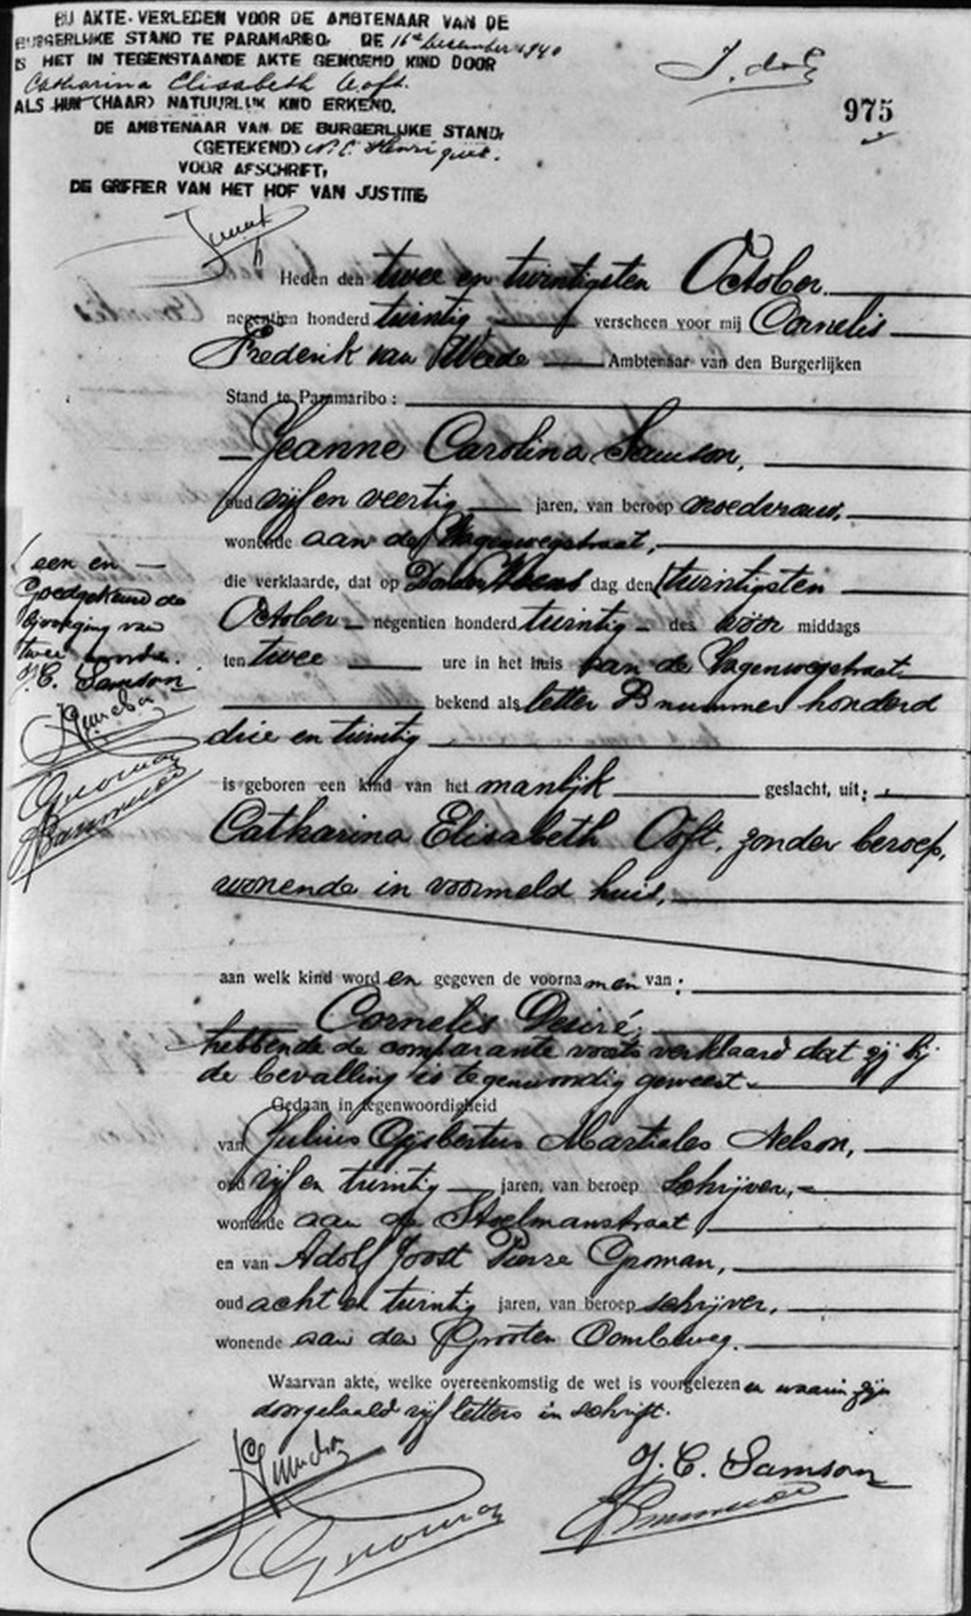 BIJ AKTE VERLEDEN VOOR DE AMBTENAAR VAN DE
BURGERLIJKE STAND TE PARAMARIBO, DE 16en December 1940
IS HET IN TEGENSTAANDE AKTE GENOEMD KIND DOOR
Catharina Elisabeth Ooft.
ALS HUN (HAAR) NATUURLIJK KIND ERKEND.
DE AMBTENAAR VAN DE BURGERLIJKE STAND,
(GETEKEND) N. C. Henriquez.
VOOR AFSCHRIFT,
DE GRIFFIER VAN HET HOF VAN JUSTITIE,
975
Heden den twee en twintigsten October
negentien honderd twintig verscheen voor mij Cornelis
Frederik van Weede Ambtenaar van den Burgerlijken
Stand te Paramaribo:
Jeanne Carolina Samson,
oud vijf en veertig jaren, van beroep vroedvrouw,
wonende aan de Wagenwegstraat,
die verklaarde, dat op Woens dag den twintigsten
October negentien honderd twintig des vóór middags
ten twee ure in het huis aan de Wagenwegstraat
bekend als letter B nummer honderd
drie en twintig
is geboren een kind van het manlijk geslacht, uit:
Catharina Elisabeth Ooft, zonder beroep,
wonende in voormeld huis,
aan welk kind worden gegeven de voornamen van:
Cornelis Desiré,
hebbende de comparante voorts verklaard dat zij bij
de bevalling is tegenwoordig geweest.
Gedaan in tegenwoordigheid
van Julius Gijsbertus Martiales Nelson,
oud vijf en twintig jaren, van beroep schrijver,
wonende aan de Stoelmanstraat
en van Adolf Joost Pierre Groman,
oud acht en twintig jaren, van beroep schrijver,
wonende aan den Grooten Combéweg.
Waarvan akte, welke overeenkomstig de wet is voorgelezen en waarin zijn
doorgehaald vijf letters in schrift.
J. C. Samson
Groman
een en
Goedgekeurd de
bijvoeging van
twee woorden.
J. C. Samson
Groman